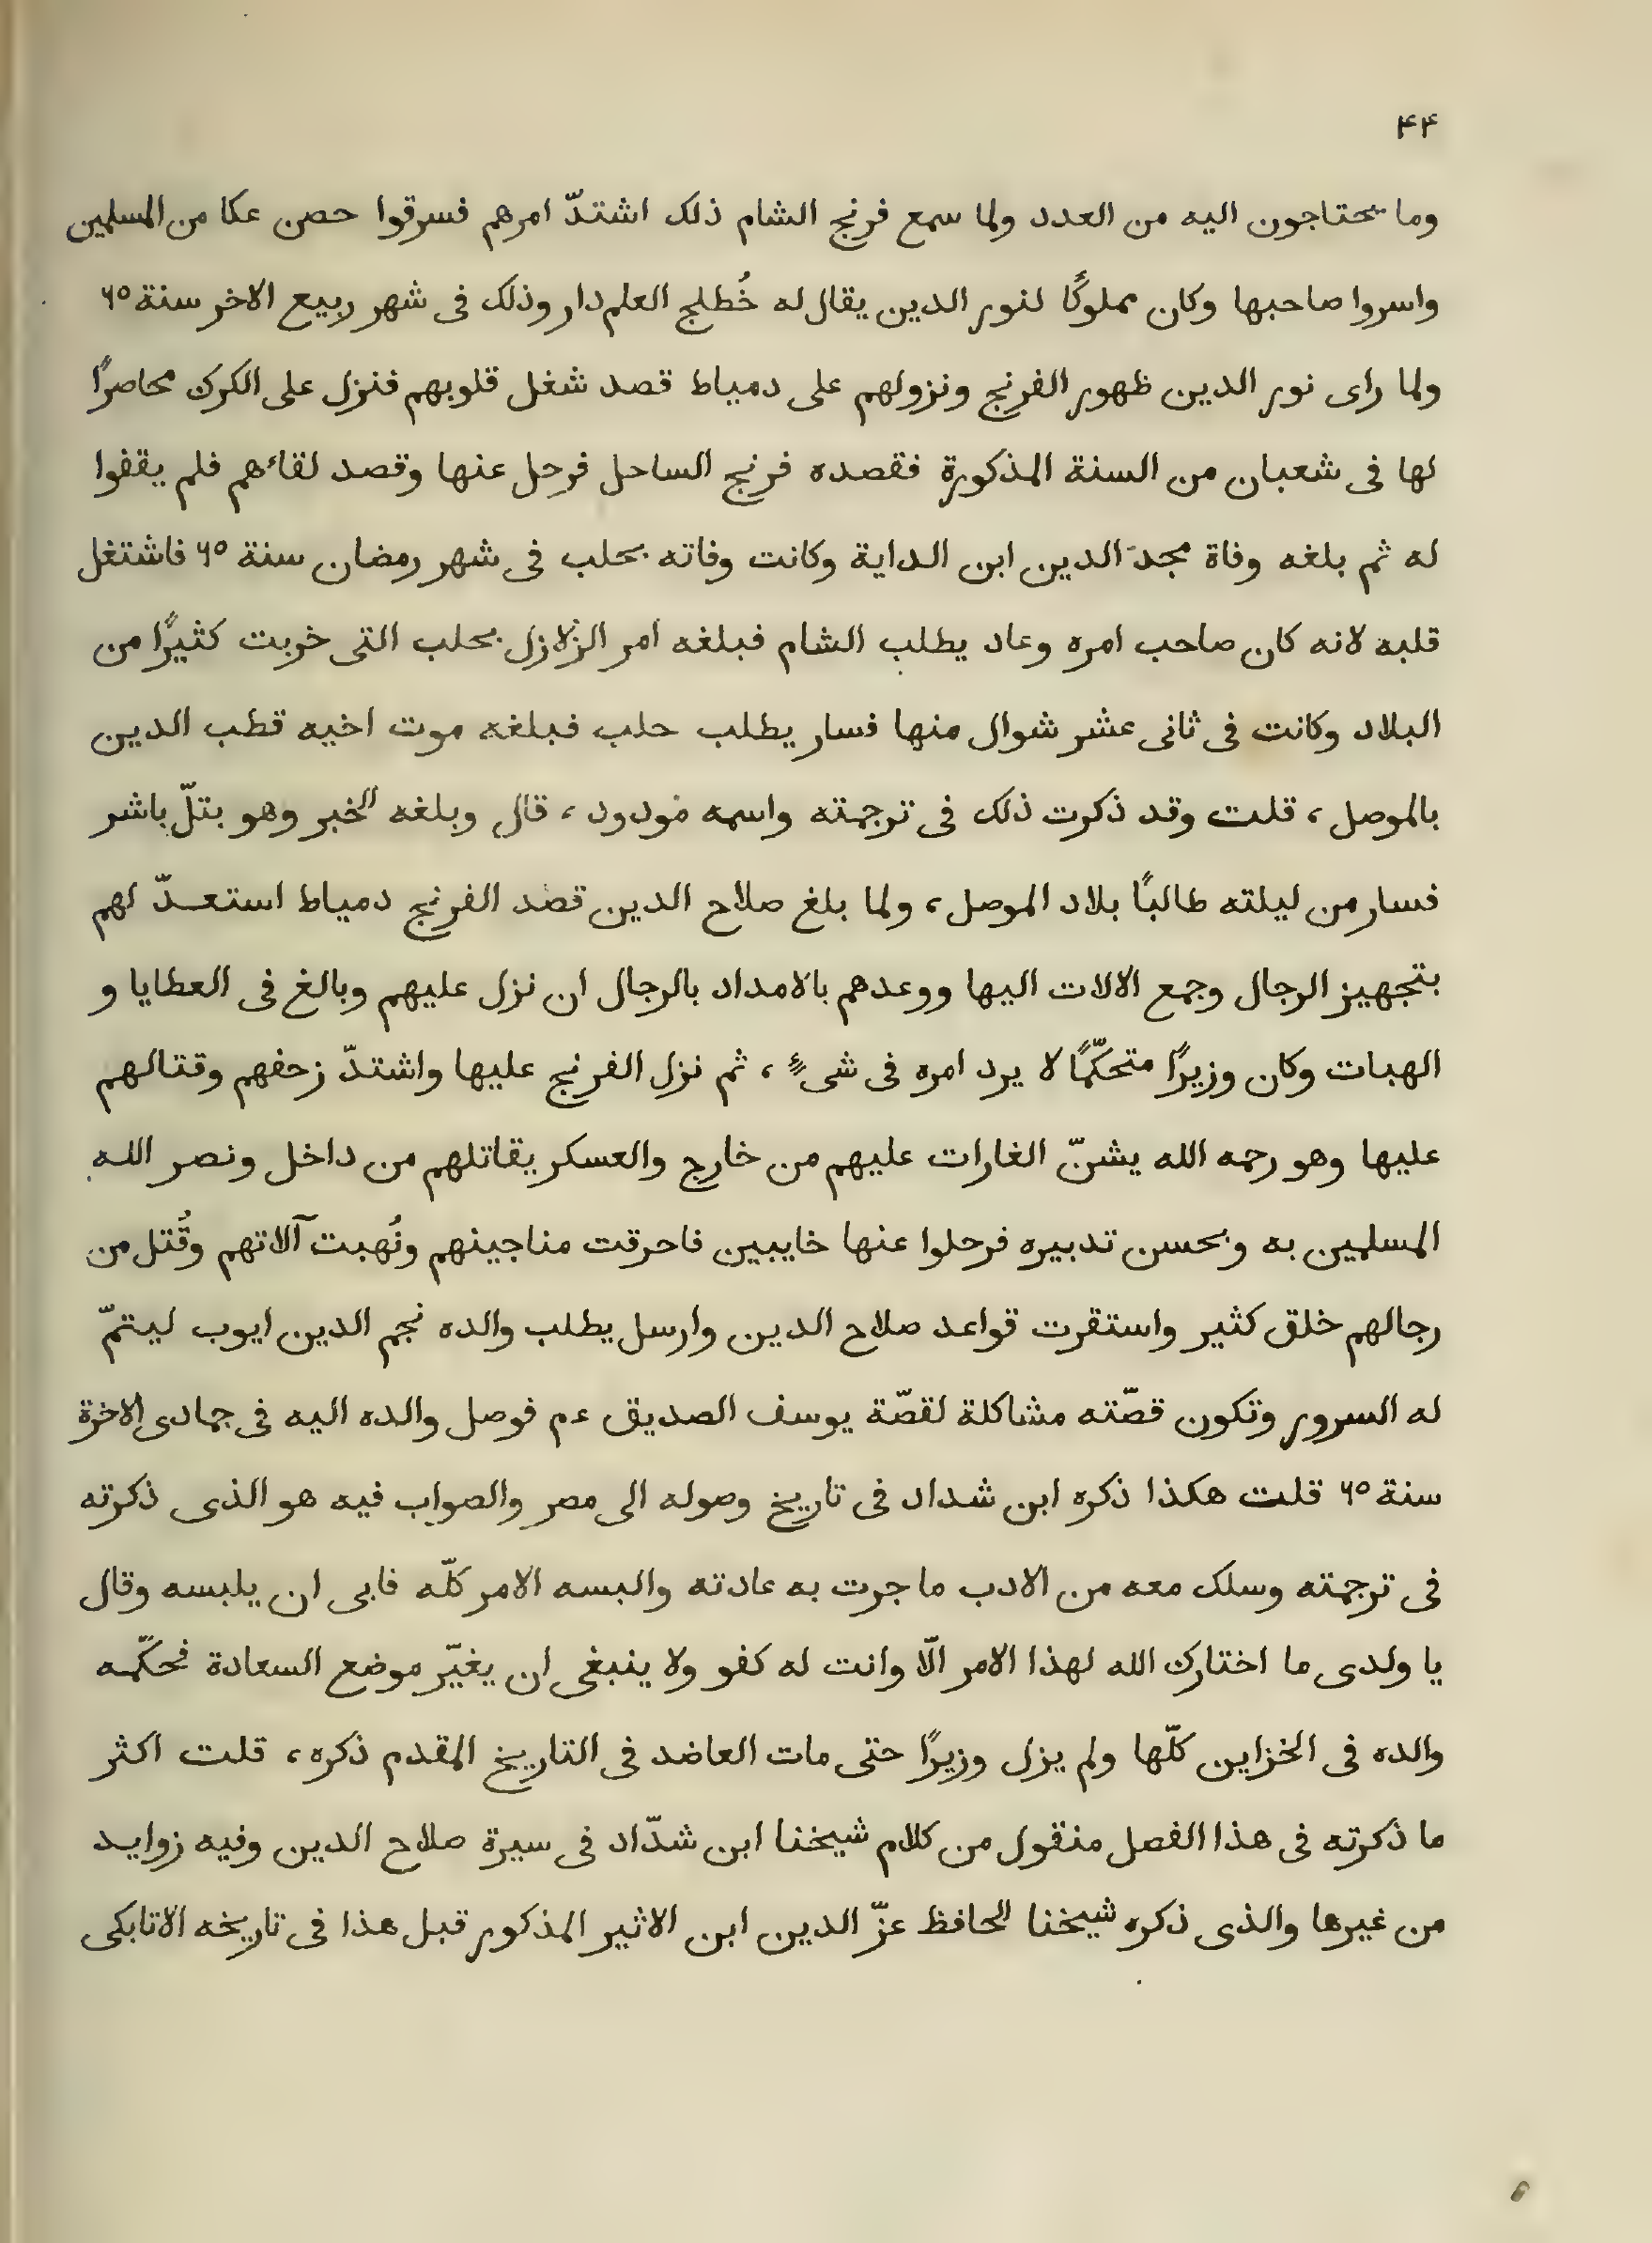 ۴۴
وما يحتاجون اليه من العدد ولما سمع فرنج الشام ذلك اشتدّ امرهم فسرقوا حصن عكا من المسلمين
واسروا صاحبها وكان مملوكًا لنور الدين يقال له خُطلج العلم دار وذلك فى شهر ربيع الاخر سنة ۶۵
ولما راى نور الدين ظهور الفرنج ونزولهم على دمياط قصد شغل قلوبهم فنزل على الكرك محاصرًا
لها فى شعبان من السنة المذكورة فقصده فرنج الساحل فرحل عنها وقصد لقاءهم فلم يقفوا
له ثم بلغه وفاة مجد الدين ابن الداية وكانت وفاته بحلب فى شهر رمضان سنة ۶۵ فاشتغل
قلبه لانه كان صاحب امره وعاد يطلب الشام فبلغه امر الزلازل بحلب التى خربت كثيرًا من
البلاد وكانت فى ثانى عشر شوال منها فسار يطلب حلب فبلغه موت اخيه قطب الدين
بالموصل ، قلت وقد ذكرت ذلك فى ترجمته واسمه مودود ، قال وبلغه الخبر وهو بتلّ باشر
فسار من ليلته طالبًا بلاد الموصل ، ولما بلغ صلاح الدين قصد الفرنج دمياط استعدّ لهم
بتجهيز الرجال وجمع الالات اليها ووعدهم بالامداد بالرجال ان نزل عليهم وبالغ فى العطايا و
الهبات وكان وزيرًا متحكّمًا لا يرد امره فى شىءٍ ، ثم نزل الفرنج عليها واشتدّ زحفهم وقتالهم
عليها وهو رحمه الله يشنّ الغارات عليهم من خارج والعسكر يقاتلهم من داخل ونصر الله
المسلمين به وبحسن تدبيره فرحلوا عنها خايبين فاحرقت مناجينهم ونُهبت آلاتهم وقُتل من
رجالهم خلق كثير واستقرت قواعد صلاح الدين وارسل يطلب والده نجم الدين ايوب ليتمّ
له السرور وتكون قصّته مشاكلة لقصّة يوسف الصديق عم فوصل والده اليه فى جمادى الاخرة
سنة ۶۵ قلت هكذا ذكره ابن شداد فى تاريخ وصوله الى مصر والصواب فيه هو الذى ذكرته
فى ترجمته وسلك معه من الادب ما جرت به عادته والبسه الامر كلّه فابى ان يلبسه وقال
يا ولدى ما اختارك الله لهذا الامر الّا وانت له كفو ولا ينبغى ان يغيّر موضع السعادة فحكّمه
والده فى الخزاين كلّها ولم يزل وزيرًا حتى مات العاضد فى التاريخ المقدم ذكره ، قلت اكثر
ما ذكرته فى هذا الفصل منقول من كلام شيخنا ابن شدّاد فى سيرة صلاح الدين وفيه زوايد
من غيرها والذى ذكره شيخنا الحافظ عزّ الدين ابن الاثير المذكور قبل هذا فى تاريخه الاتابكى